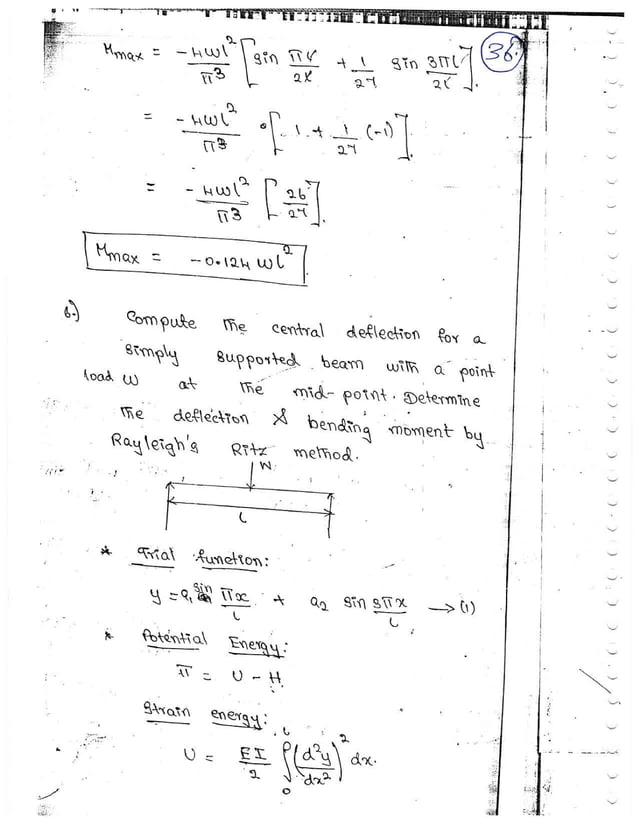 Mmax = -4wl²/π³ [sin πl/2l + 1/27 sin 3πl/2l]. 36.
= -4wl²/π³ [1 + 1/27 (-1)].
= -4wl²/π³ [26/27].
Mmax = -0.124 wl²
6.) Compute the central deflection for a
simply supported beam with a point
load W at the mid-point. Determine
the deflection & bending moment by
Rayleigh's Ritz method.
W
l
* Trial function:
y = a₁ sin πx/l + a₂ sin 3πx/l → (1)
* Potential Energy:
π = U - H
Strain energy:
U = EI/2 ∫₀ˡ (d²y/dx²)² dx.